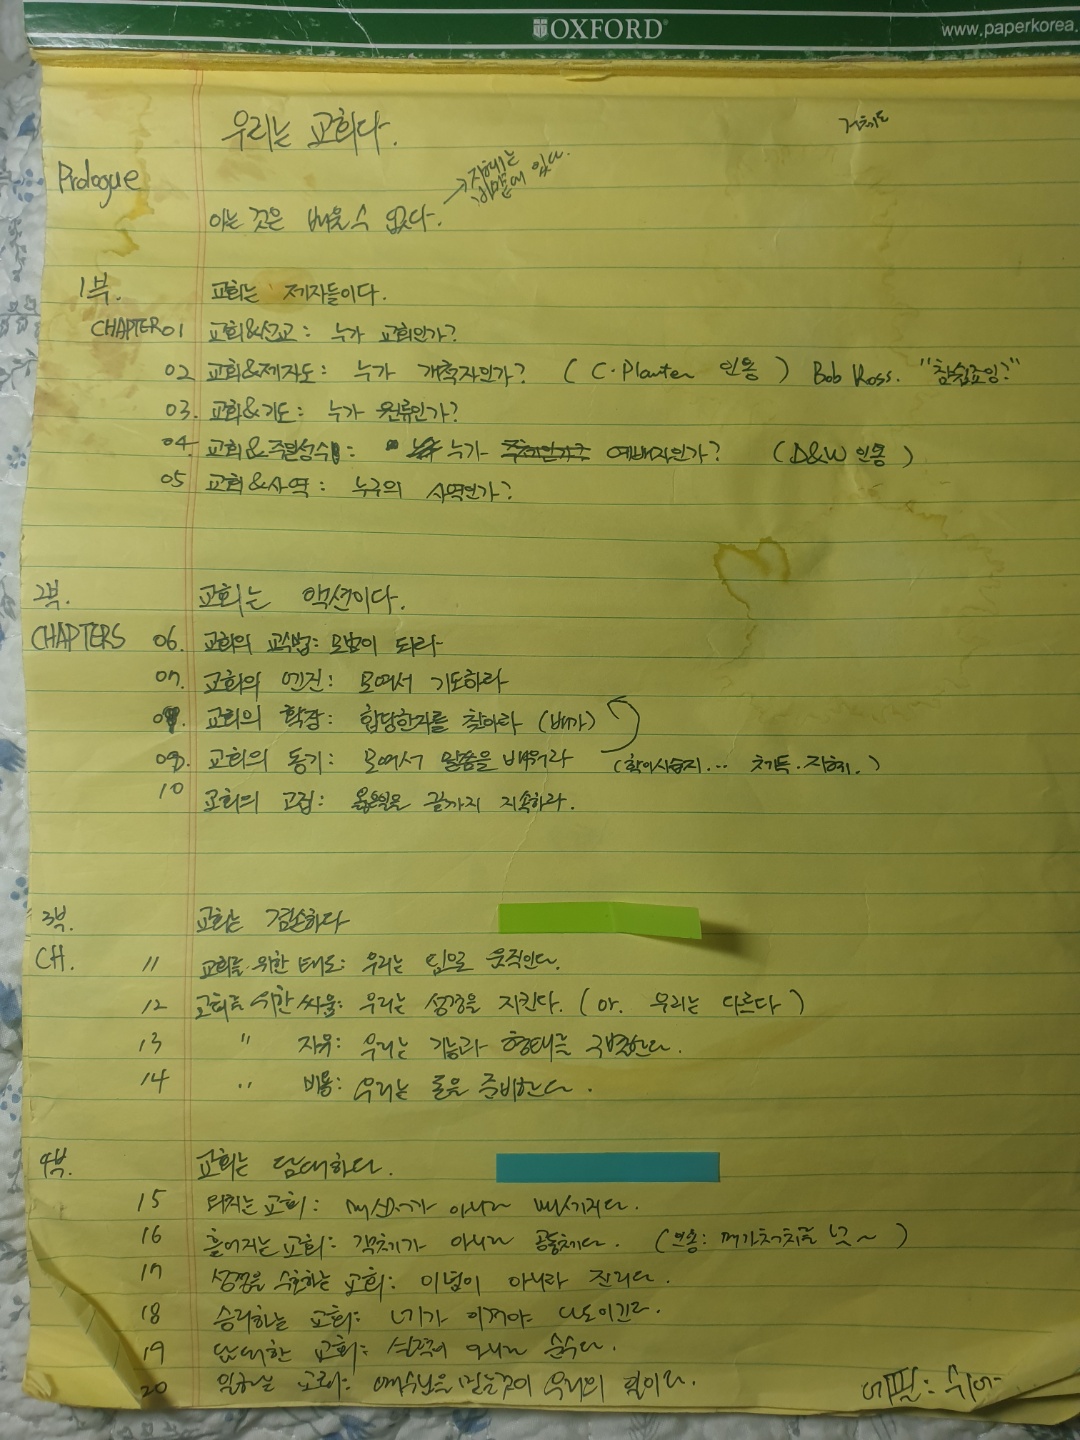 OXFORD
www.paperkorea.
우리는 교회다.
Prologue
→ 지혜는
아는 것은 배울 수 없다.
있다.
1부. 교회는 제자들이다.
CHAPTER 01 교회&선교: 누가 교회인가?
02 교회&제자도: 누가 개척자인가? (C·Planter 인용) Bob Ross. "참쉽죠잉?"
03. 교회&기도: 누가 인가?
04. 교회&주일성수: 누가 예배자인가? (D&W 인용)
05 교회&사역: 누구의 사역인가?
2부. 교회는 액션이다.
CHAPTERS 06. 교회의 교수법: 모범이 되라
07. 교회의 엔진: 모여서 기도하라
08. 교회의 확장: 합당한자를 찾아라 (배가)
09. 교회의 동기: 모여서 말씀을 배워라 (학이시습지...)
10 교회의 고집: 옳은일을 끝까지 지속하라.
3부. 교회는 겸손하다
CH. 11 교회를 위한 태도: 우리는 믿음으로 움직인다.
12 교회를 위한 싸움: 우리는 성경을 지킨다. (or. 우리는 다르다)
13 " 자유: 우리는 기능과 형태를 구별한다.
14 " 비용: 우리는 돈을 준비한다.
4부. 교회는 담대하다.
15 퍼지는 교회: 메신저가 아니라 메시지다.
16 흩어지는 교회: 객체가 아니라 공동체다.
17 성경을 수호하는 교회: 이념이 아니라 진리다.
18 승리하는 교회: 네가 이겨야 나도이긴다.
19 담대한 교회: 아니라 순수다.
20 일하는 교회: 예수님을 믿는것이 우리의 일이다.
에필: